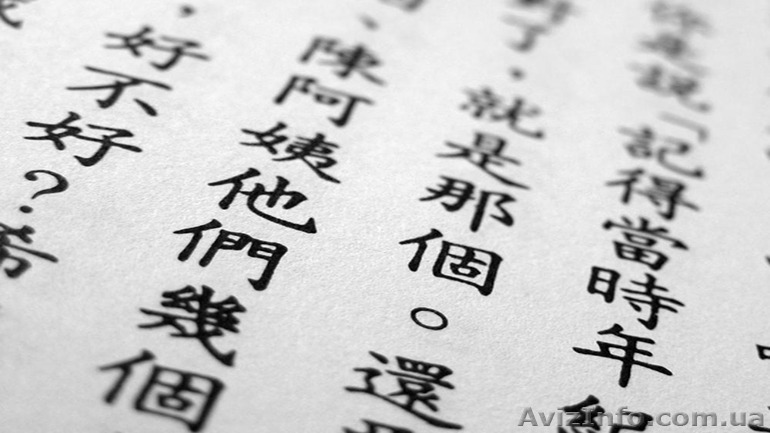 你是說「記得當時年紀
對了，就是那個。還
、陳阿姨他們幾個
，好不好？希
AvizInfo.com.ua